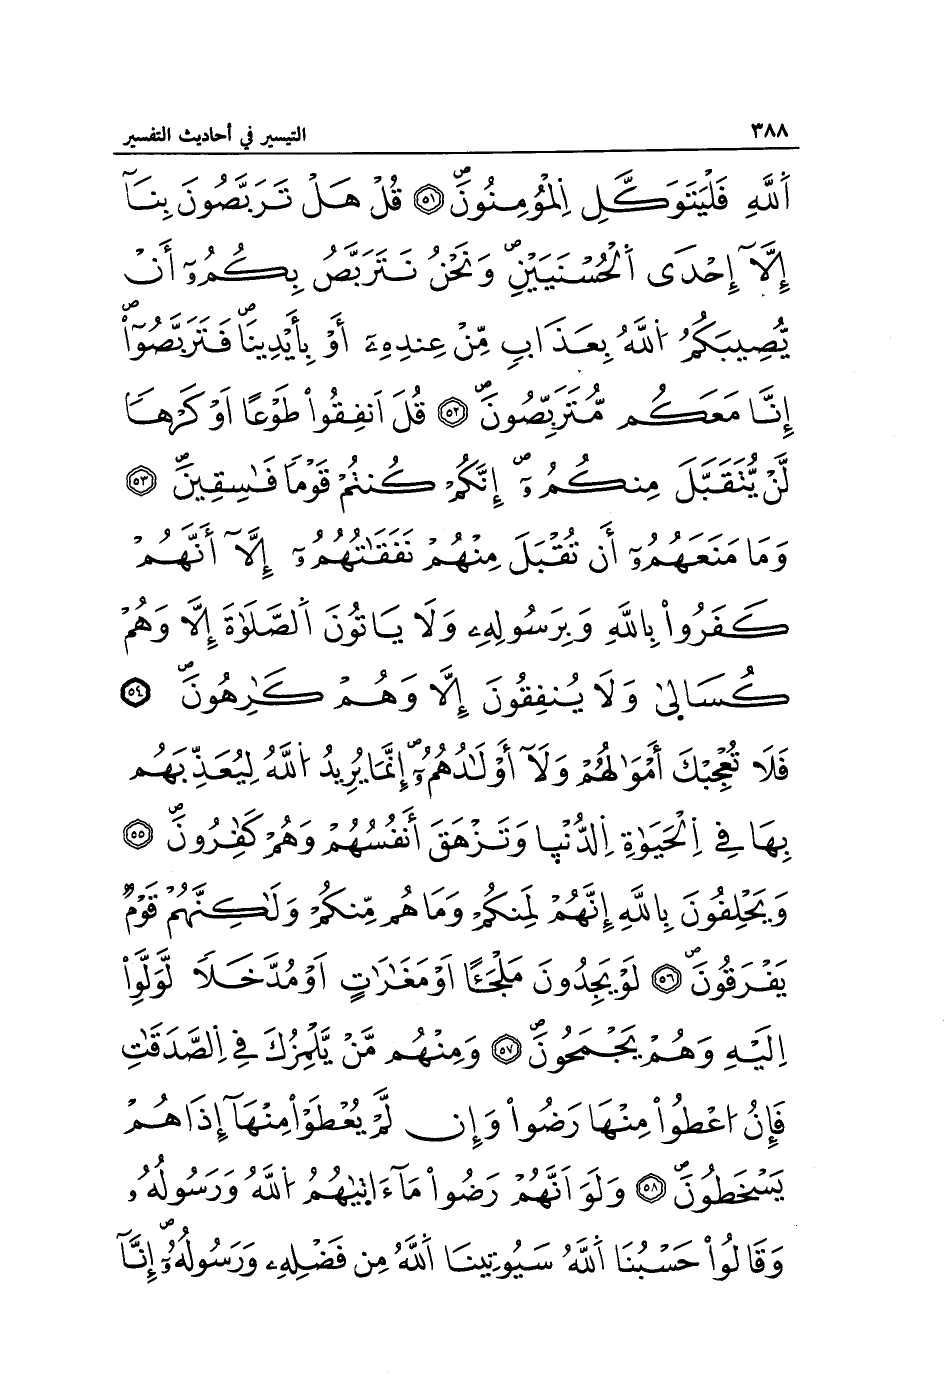 ٣٨٨
التيسير في أحاديث التفسير
اَ۬للَّهِ فَلْيَتَوَكَّلِ اِ۬لْمُؤْمِنُونَۖ ۝٥١ قُلْ هَلْ تَرَبَّصُونَ بِنَآ
إِلَّآ إِحْدَى اَ۬لْحُسْنَيَيْنِۖ وَنَحْنُ نَتَرَبَّصُ بِكُمُۥٓ أَنْ
يُّصِيبَكُمُ اُ۬للَّهُ بِعَذَابٖ مِّنْ عِندِهِۦٓ أَوْ بِأَيْدِينَاۖ فَتَرَبَّصُوٓاْۖ
إِنَّا مَعَكُم مُّتَرَبِّصُونَۖ ۝٥٢ قُلَ اَنفِقُواْ طَوْعًا اَوْ كَرْهًا
لَّنْ يُّتَقَبَّلَ مِنكُمُۥٓۖ إِنَّكُمْ كُنتُمْ قَوْمًا فَٰسِقِينَۖ ۝٥٣
وَمَا مَنَعَهُمُۥٓ أَن تُقْبَلَ مِنْهُمْ نَفَقَٰتُهُمُۥٓ إِلَّآ أَنَّهُمْ
كَفَرُواْ بِاللَّهِ وَبِرَسُولِهِۦ وَلَا يَاتُونَ اَ۬لصَّلَوٰةَ إِلَّا وَهُمْ
كُسَالَىٰ وَلَا يُنفِقُونَ إِلَّا وَهُمْ كَٰرِهُونَۖ ۝٥٤
فَلَا تُعْجِبْكَ أَمْوَٰلُهُمْ وَلَآ أَوْلَٰدُهُمُۥٓۖ إِنَّمَا يُرِيدُ اُ۬للَّهُ لِيُعَذِّبَهُم
بِهَا فِي اِ۬لْحَيَوٰةِ اِ۬لدُّنْي۪ا وَتَزْهَقَ أَنفُسُهُمْ وَهُمْ كَٰفِرُونَۖ ۝٥٥
وَيَحْلِفُونَ بِاللَّهِ إِنَّهُمْ لَمِنكُمْ وَمَا هُم مِّنكُمْ وَلَٰكِنَّهُمْ قَوْمٞ
يَفْرَقُونَۖ ۝٥٦ لَوْ يَجِدُونَ مَلْجَـًٔا اَوْ مَغَٰرَٰتٍ اَوْ مُدَّخَلًا لَّوَلَّوِاْ
اِلَيْهِ وَهُمْ يَجْمَحُونَۖ ۝٥٧ وَمِنْهُم مَّنْ يَّلْمِزُكَ فِي اِ۬لصَّدَقَٰتِ
فَإِنُ ا۟عْطُواْ مِنْهَا رَضُواْ وَإِن لَّمْ يُعْطَوْاْ مِنْهَآ إِذَا هُمْ
يَسْخَطُونَۖ ۝٥٨ وَلَوَ اَنَّهُمْ رَضُواْ مَآ ءَات۪يٰهُمُ اُ۬للَّهُ وَرَسُولُهُۥ
وَقَالُواْ حَسْبُنَا اَ۬للَّهُ سَيُوتِينَا اَ۬للَّهُ مِن فَضْلِهِۦ وَرَسُولُهُۥٓۖ إِنَّآ